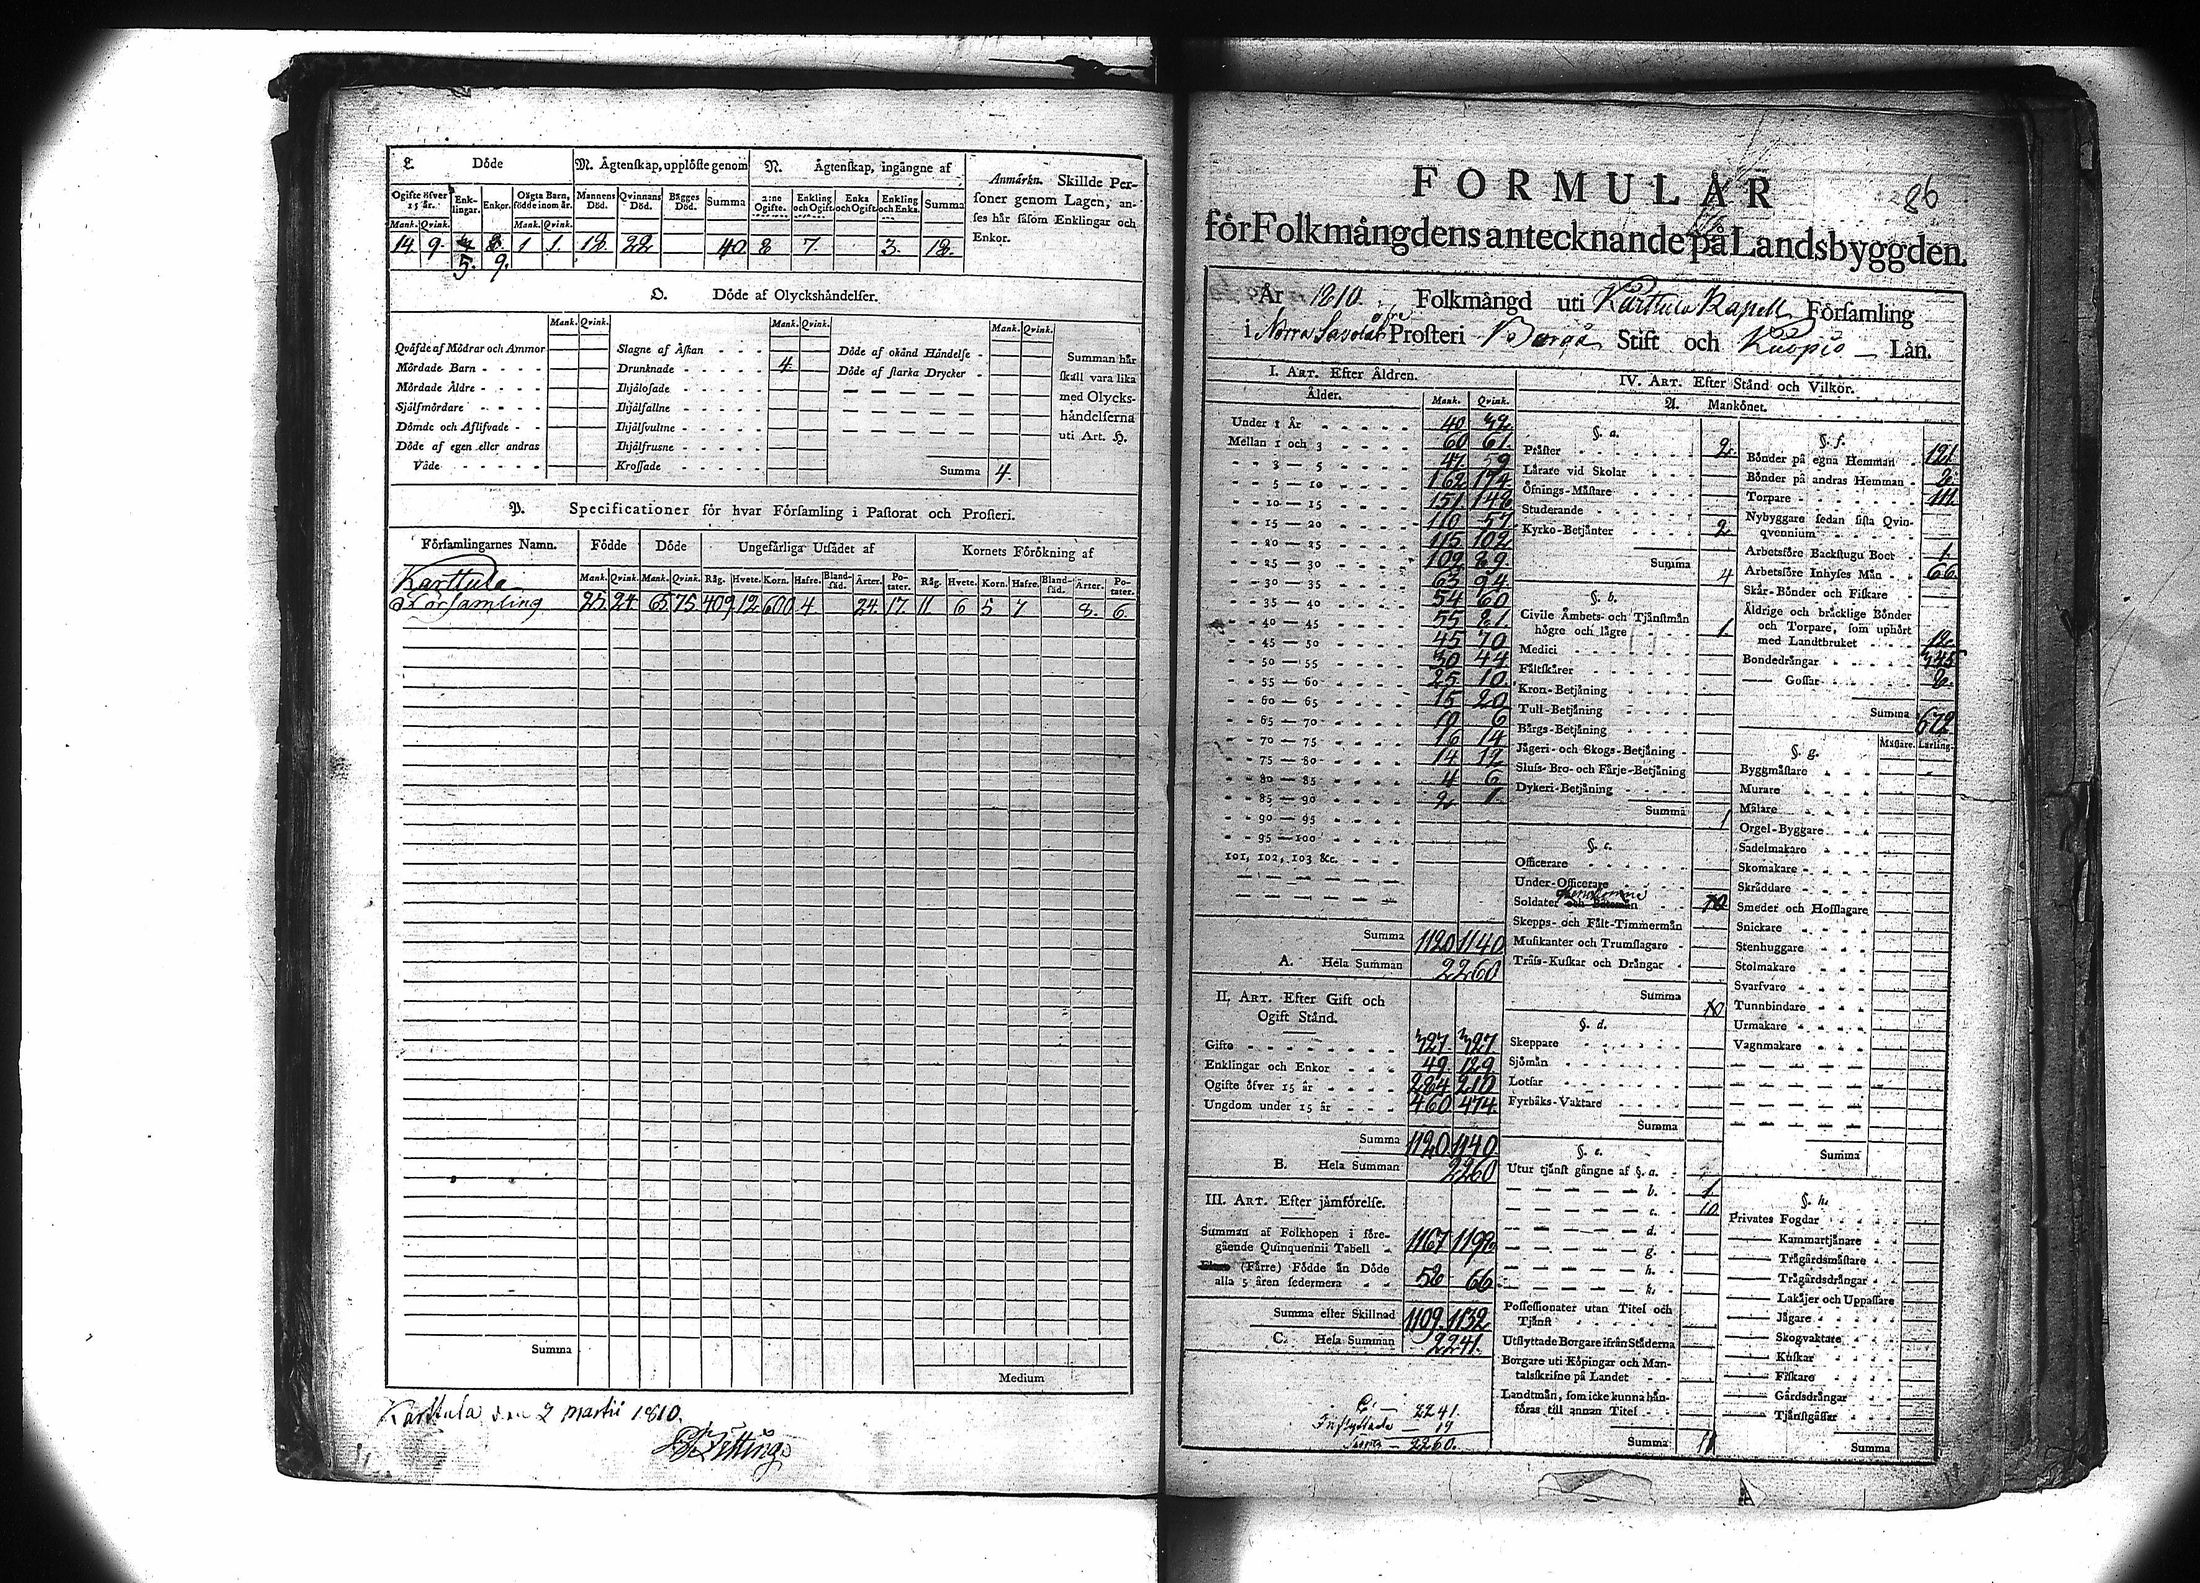 L. Döde
M. Ägtenskap, upplöste genom
N. Ägtenskap, ingångne af
Anmärkn. Skillde Per-
soner genom Lagen, an-
ses här såsom Enklingar och
Enkor.
Ogifte öfver 15 år. Enk-lingar. Enkor. Oägta Barn, födde inom år. Mannens Död. Qvinnans Död. Bägges Död. Summa 2:ne Ogifte. Enkling och Ogift Enka och Ogift Enkling och Enka. Summa
Mank. Qvink. Mank. Qvink.
14 9. 1 1. 18. 22 40 8 7. 3. 18.
5. 9.
O. Döde af Olyckshändelser.
Mank. Qvink. Mank. Qvink. Mank. Qvink.
Qväfde af Mödrar och Ammor
Mördade Barn
Mördade Äldre
Självmördare
Dömde och Aflifvade
Döde af egen eller andras
Våde
Slagne af Åskan
Drunknade 4.
Ihjälosade
Ihjälfallne
Ihjälsvultne
Ihjälfrusne
Krossade
Döde af okänd Händelse
Döde af starka Drycker
Summa 4.
Summan här
skall vara lika
med Olycks-
händelserna
uti Art. H.
P. Specificationer för hvar Församling i Pastorat och Prosteri.
Församlingarnes Namn. Födde Döde Ungefärliga Utsädet af Kornets Förökning af
Mank. Qvink. Mank. Qvink. Råg. Hvete. Korn. Hafre. Bland-säd. Ärter. Po-tater. Råg. Hvete. Korn. Hafre. Bland-säd. Ärter. Po-tater.
Karttula
Församling 25. 24 65 75 409 12 600 4 24 17. 11 6 5 7 8. 6.
Summa
Medium
Karttula den 2 Martii 1810.
86
FORMULÄR
för Folkmängdens antecknande på Landsbyggden.
År 1810. Folkmängd uti Karttula Kapell Församling
i Norra Savolax öfre Prosteri Borgå Stift och Kuopio Län.
I. ART. Efter Åldren.
Ålder. Mank. Qvink.
Under 1 År 40 32
Mellan 1 och 3 60 61.
3 — 5 47. 59
5 — 10 162 174.
10 — 15 151. 148.
15 — 20 110 57.
20 — 25 115 102
25 — 30 102 89.
30 — 35 63 94
35 — 40 54 60
40 — 45 55 81.
45 — 50 45 70
50 — 55 30 44
55 — 60 25. 10.
60 — 65 15 20
65 — 70 10 6
70 — 75 16 14
75 — 80 14 12
80 — 85 4 6
85 — 90 2 1.
90 — 95
95 — 100
101, 102, 103 &c.
Summa 1120 1140
A. Hela Summan 2260
II. ART. Efter Gift och
Ogift Stånd.
Gifte 327. 327.
Enklingar och Enkor 49. 129
Ogifte öfver 15 år 284 210
Ungdom under 15 år 460 474.
Summa 1120 1140.
B. Hela Summan 2260
III. ART. Efter jämförelse.
Summan af Folkhopen i före-
gående Quinquennii Tabell 1167 1198
(Färre) Födde än Döde
alla 5 åren sedermera 58 66
Summa eller Skillnad 1109. 1132
C. Hela Summan 2241.
C. — 2241.
Inflyttade — 19
Summa — 2260.
IV. ART. Efter Stånd och Vilkor.
A. Mankönet.
§. a.
Präster 2.
Lärare vid Skolar
Öfnings-Mästare
Studerande
Kyrko-Betjänter 2
Summa 4
§. b.
Civile Ämbets- och Tjänstmän
högre och lägre 1.
Medici
Fältskärer
Kron-Betjäning
Tull-Betjäning
Bärgs-Betjäning
Jägeri- och Skogs-Betjäning
Sluss- Bro- och Färje-Betjäning
Dykeri-Betjäning
Summa 1
§. c.
Officerare
Under-Officerare
Soldater och Båtsmän 10
Skepps- och Fält-Timmermän
Musikanter och Trumslagare
Träss-Kuskar och Drängar
Summa 10
§. d.
Skeppare
Sjömän
Lotsar
Fyrbåks-Vaktare
Summa
§. e.
Utur tjänst gångne af §. a.
b. 1.
c. 10
d.
g.
h.
k.
Possessionater utan Titel och
Tjänst
Utflyttade Borgare ifrån Städerna
Borgare uti Köpingar och Man-
talsskrifne på Landet
Landtmän, som icke kunna hän-
föras till annan Titel
Summa 11
§. f.
Bönder på egna Hemman 121.
Bönder på andras Hemman 2.
Torpare 111.
Nybyggare sedan sista Qvin-
qvennium
Arbetsföre Backstugu Boer 1.
Arbetsföre Inhyses Män 66
Skär-Bönder och Fiskare
Äldrige och bräcklige Bönder
och Torpare, som uphört
med Landtbruket 18.
Bondedrängar 345
Gossar 8.
Summa 672
§. g. Mästare. Lärling.
Byggmästare
Murare
Målare
Orgel-Byggare
Sadelmakare
Skomakare
Skräddare
Smeder och Hofslagare
Snickare
Stenhuggare
Stolmakare
Svarfvare
Tunnbindare
Urmakare
Vagnmakare
Summa
§. h.
Privates Fogdar
Kammartjänare
Trägårdsmästare
Trägårdsdrängar
Lakäjer och Uppassare
Jägare
Skogvaktare
Kuskar
Fiskare
Gårdsdrängar
Tjänstgässar
Summa